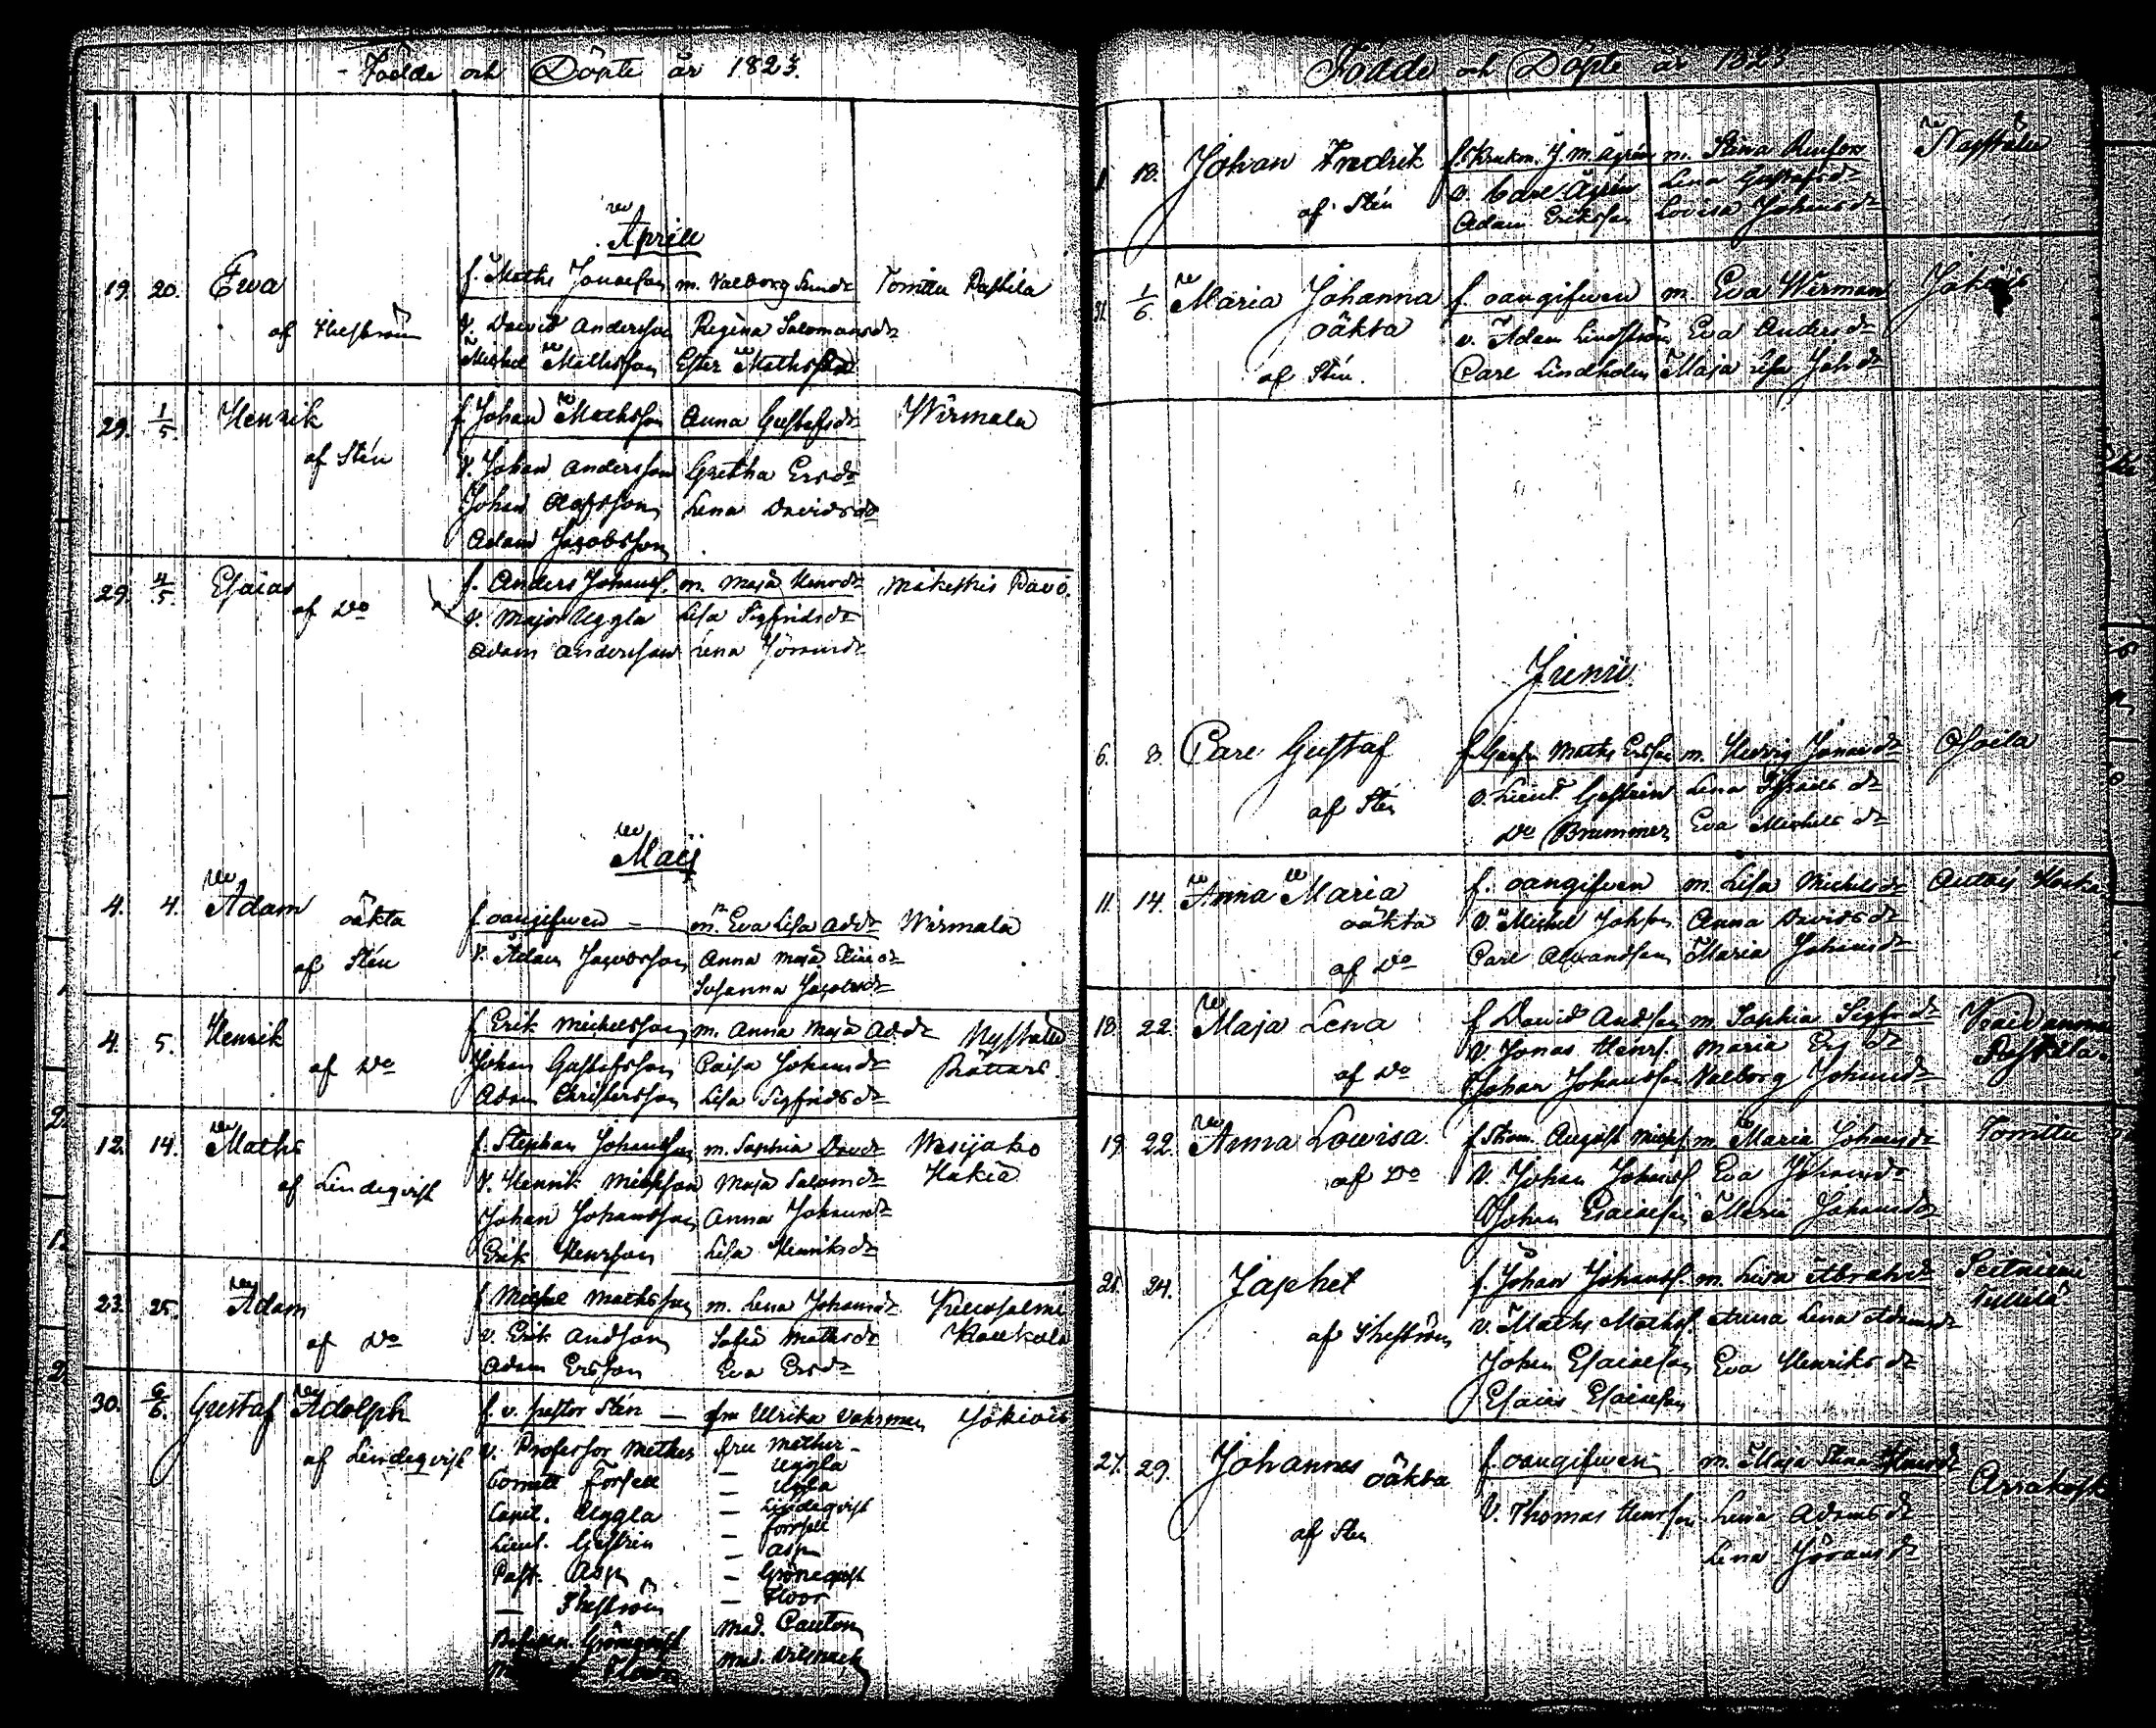 Födde och Döpte år 1823.
Aprill
19. 20. Ewa f. Maths Jonasson m. Valborg Simdr Tomttu Pastila
af Thesström V. David Andersson Regina Salomonsdr
Michel Mathsson Ester Mathsdr
29. 1/5. Henrik f. Johan Mathsson Anna Gustafsdr Wirmala
af Stén V. Johan Andersson Gretha Ersdr
Johan Olofsson Lena Davidsdr
Adam Jacobsson
29. 4/5. Esaias f. Anders Johanss. m. Maja Henrdr
af Do V. Major Uggla Lisa Sigfridsdr
Adam Andersson Lena Göransdr
Maij
4. 4. Adam oäkta f. oangifwen – m. Eva Lisa Addr Wirmala
af Stén V. Adam Jacobsson Anna Maja
Susanna Jacobsdr
4. 5. Henrik f. Erik Michelsson m. Anna Maja Addr Nystalu
af Do Johan Gustafsson Caisa Johansdr Rättars
Adam Christersson Lisa Sigfridsdr
12. 14. Maths f. Stephan Johansson m. Sophia Davdr Wesijako
af Lindeqvist V. Henrik Michsson Maja Salomdr Hakia
Johan Johansson Anna Johansdr
Erik Henrsson Lisa Henriksdr
23. 25. Adam f. Michel Mathsson m. Lena Johansdr
af Do v. Erik Andsson Sofia Mathsdr Kaukola
Adam Ersson Eva Ersdr
30. 6/6. Gustaf Adolph f. v. pastor Stén – fru Ulrika
af Lindeqvist V. Professor Mether fru Mether
Cornett Forsell – Uggla
Capit. Uggla – Lindeqvist
Lieut. Gestrin – Forssell
Past. Asp – Asp
– Thesström – Gröneqvist
– Floor
Mad. Cauton
Mad.
Födde och Döpte år 1823
18. Johan Fredrik m. Stina
af Stén v. Carl Ågrén Lena Gustafsdr
Adam Eriksson Lovisa Johansdr
31. 1/6. Maria Johanna f. oangifwen m. Eva Wirman Jokiois
oäkta v. Adam Lindström Eva Andersdr
af Stén. Carl Lindholm Maja Lisa Johdr
Junii
6. 8. Carl Gustaf f. Maths Ersson m. Hedvig Jonasdr Ojoila
af Stén v. Lieut. Gestrin Lena
Do Brummer Eva Michelsdr
11. 14. Anna Maria f. oangifwen m. Lisa Michelsdr
oäkta v. Michel Johsson Anna Davidsdr
af Do Carl Alexandsson Maria Johansdr
18. 22. Maja Lena f. David Andsson m. Sophia Sigfrdr
af Do V. Jonas Henrs. Maria Ersdr Pastila
Johan Johansson Valborg Johansdr
19. 22. Anna Lowisa f. August m. Maria Johansdr Tomttu
af Do V. Johan Johanss. Eva Johansdr
Johan Esaiasson Maria Johansdr
21. 24. Japhet f. Johan Johanss. m. Lena Abrahdr
af Thesström v. Maths Mathss. Anna Lena Adamsdr
Johan Esaiasson Eva Henriksdr
Esaias Esaiasson
27. 29. Johannes oäkta f. oangifwen m. Maja Stina
af Sten V. Thomas Henrsson Lena Adamsdr
Lena Göransdr